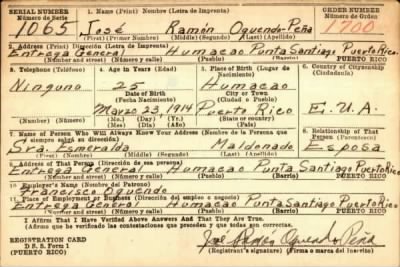 SERIAL NUMBER 1. Name (Print) Nombre (Letra de Imprenta) ORDER NUMBER
Número de Serie Número de Orden
1065 José Ramón Oquendo-Peña 1700
(First) (Primer Nombre) (Middle) (Segundo) (Last) (Apellido)
2. Address (Print) Dirección (Letra de Imprenta)
Entrega General Humacao Punta Santiago Puerto Rico
(Number and street) (Barrio) PUERTO RICO
3. Telephone (Teléfono) 4. Age in Years (Edad) 5. Place of Birth (Lugar de Nacimiento) 6. Country of Citizenship (Ciudadanía)
Ninguno 25 Humacao
Date of Birth City or Town
(Fecha Nacimiento) (Ciudad o Pueblo)
Marzo 23, 1914 Puerto Rico E.U.A.
(Number) (Número) (Mo.) (Day) (Yr.) (State or country)
7. Name of Person Who Will Always Know Your Address (Nombre de la Persona que siempre sabrá su dirección) 8. Relationship of That Person (Parentesco)
Sra. Esmeralda Maldonado Esposa
(First) (Middle) (Segundo) (Last) (Apellido)
9. Address of That Person (Dirección de esa persona)
Entrega General Humacao Punta Santiago Puerto Rico
(Number and street) (Barrio) PUERTO RICO
10. Employer's Name (Nombre del Patrono)
Francisco Oquendo
11. Place of Employment or Business (Dirección del empleo o negocio)
Entrega General Humacao Punta Santiago Puerto Rico
(Number and street) (Barrio) PUERTO RICO
I Affirm That I Have Verified Above Answers And That They Are True.
(Afirmo que he verificado las contestaciones que preceden y que todas son ciertas)
REGISTRATION CARD
D. S. S. Form 1
(PUERTO RICO)
José Ramón Oquendo Peña
(Registrant's signature) (Firma o marca del Inscrito)